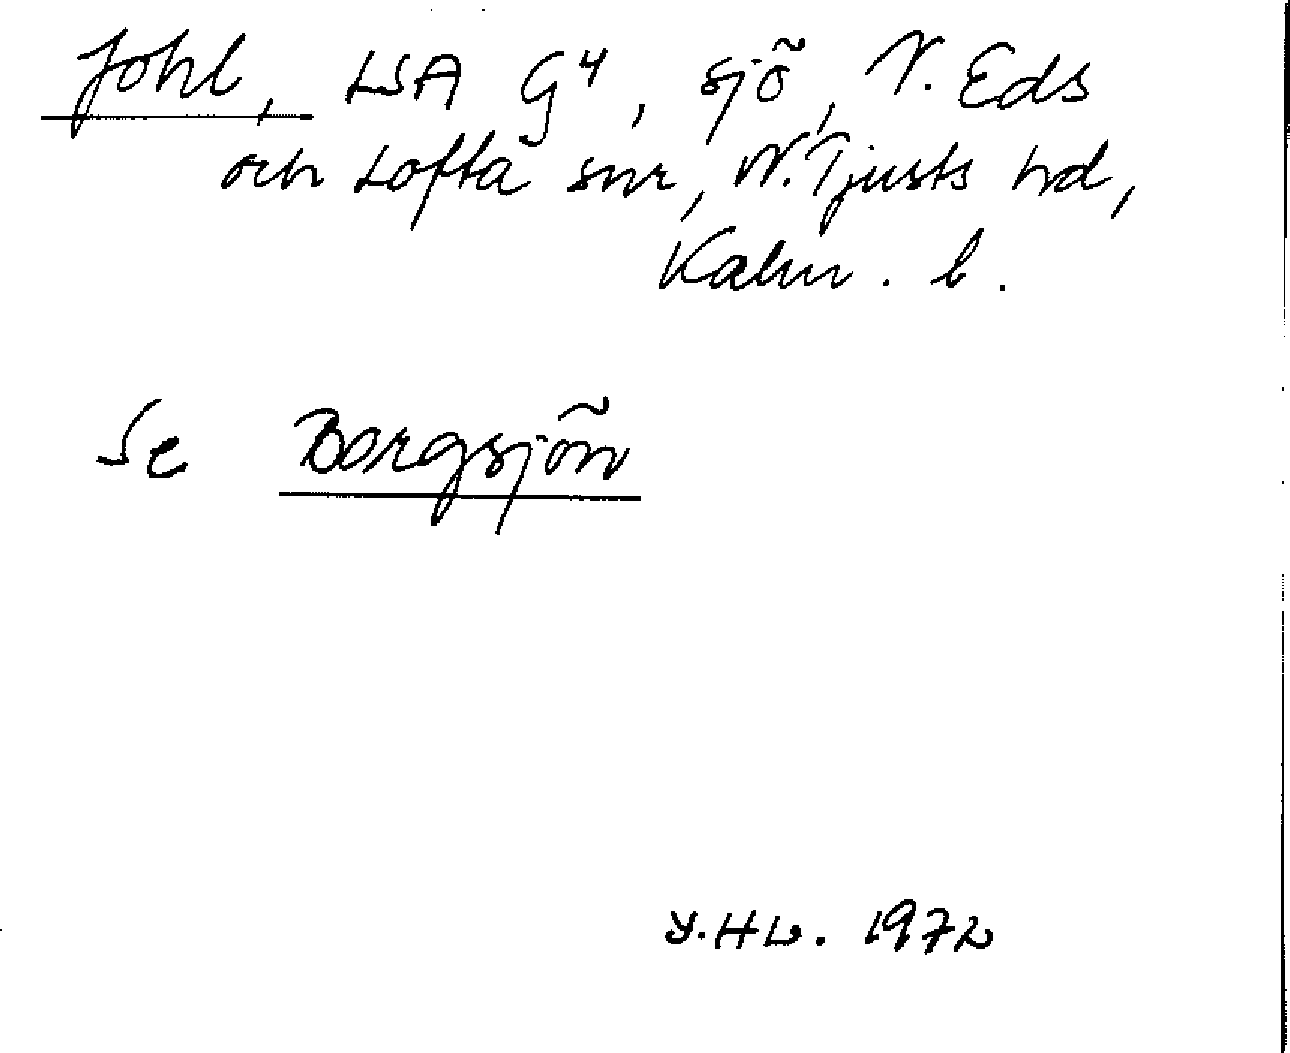 Johl, LSA G4, sjö, V. Eds
och Lofta snr, N. Tjusts hd,
Kalm. l.
Se Borgsjön
Y.HL. 1972